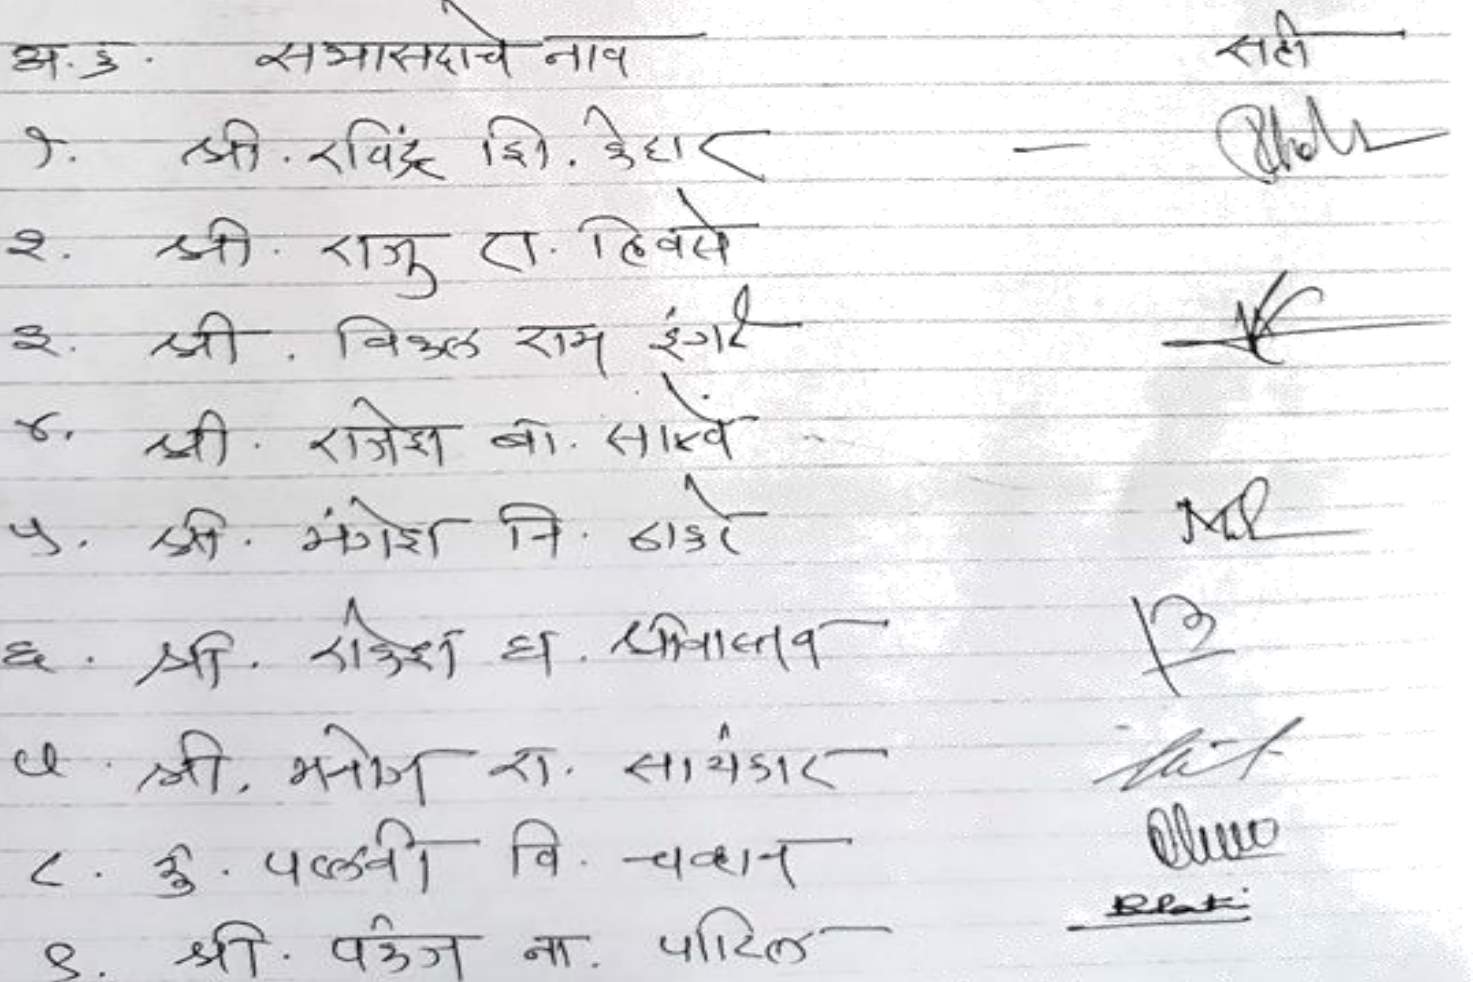 अ.क्र. सभासदाचे नाव सही
१. श्री. रविंद्र शि. केदार –
२. श्री. राजु रा. हिवसे
३. श्री. विठ्ठल राम इंगळे
४. श्री. राजेश बा. साळवे
५. श्री. मंगेश नि. ठाकरे
६. श्री. राकेश ध. श्रीवास्तव
७. श्री. मनोज रा. सायंकार
८. कु. पल्लवी वि. चव्हान
९. श्री. पंकज ना. पाटिल